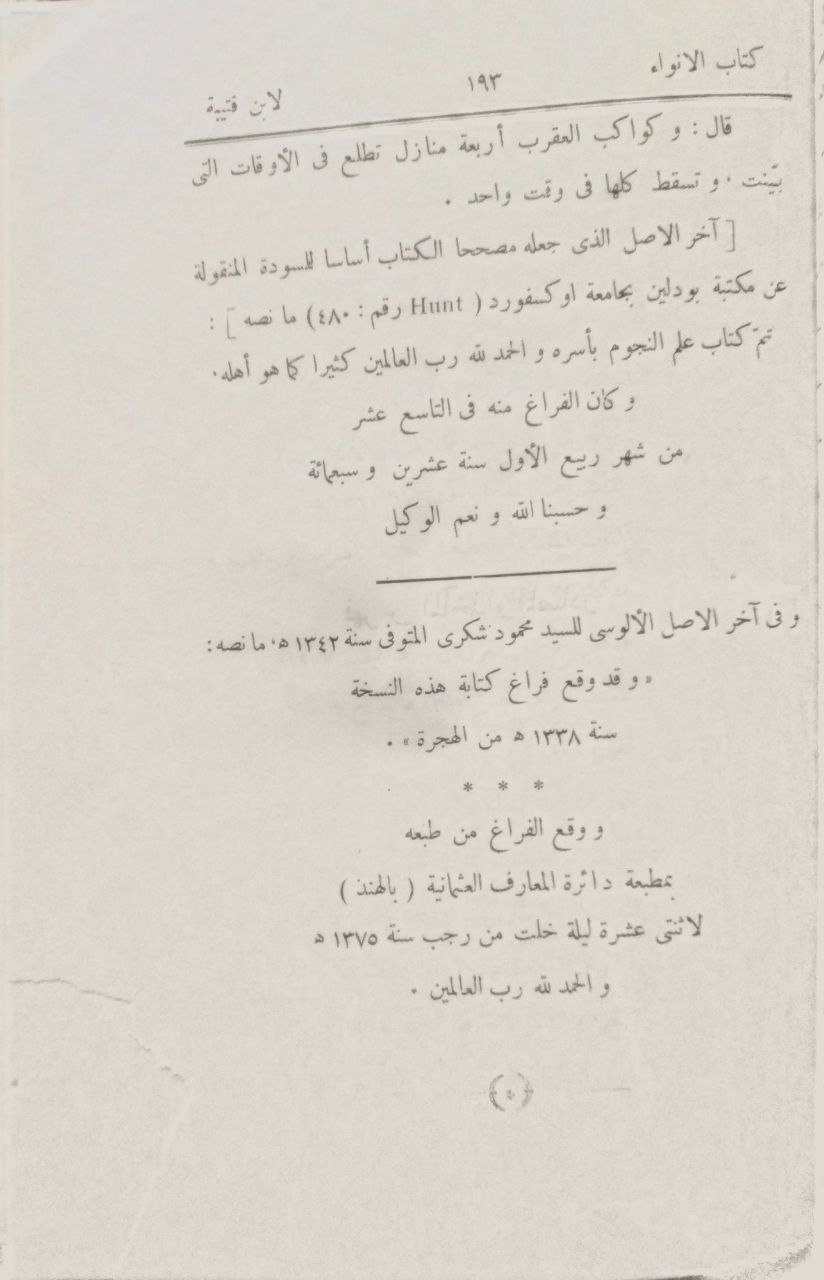 كتاب الانواء ١٩٣ لابن قتيبة
قال : و كواكب العقرب أربعة منازل تطلع فى الأوقات التى
بيّنت . و تسقط كلها فى وقت واحد .
[ آخر الاصل الذى جعله مصححا الكتاب أساسا للسودة المنقولة
عن مكتبة بودلين بجامعة اوكسفورد ( Hunt رقم : ٤٨٠) ما نصه ] :
تمّ كتاب علم النجوم بأسره و الحمد لله رب العالمين كثيرا كما هو أهله.
و كان الفراغ منه فى التاسع عشر
من شهر ربيع الأول سنة عشرين و سبعمائة
و حسبنا الله و نعم الوكيل
و فى آخر الاصل الألوسى للسيد محمود شكرى المتوفى سنة ١٣٤٢ ه‍. ما نصه :
« و قد وقع فراغ كتابة هذه النسخة
سنة ١٣٣٨ ه‍ من الهجرة » .
* * *
و وقع الفراغ من طبعه
بمطبعة دائرة المعارف العثمانية ( بالهند )
لاثنتى عشرة ليلة خلت من رجب سنة ١٣٧٥ ه‍
و الحمد لله رب العالمين .